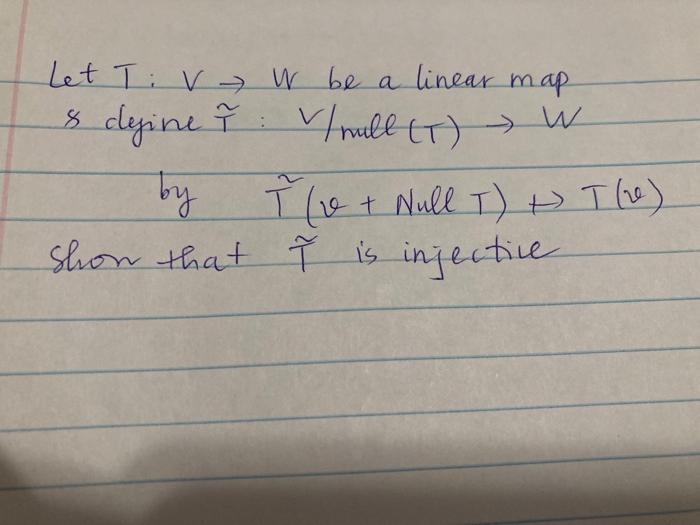 Let T : V → W be a linear map
& define T̃ : V/null (T) → W
by T̃ (v + Null T) ↦ T(v)
Show that T̃ is injective